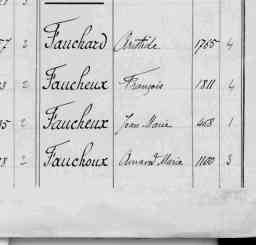 2 Fauchard Aristide 1765 4
2 Faucheux François 1811 4
2 Faucheux Jean Marie 468 1
2 Fauchoux Amand Maria 1100 3